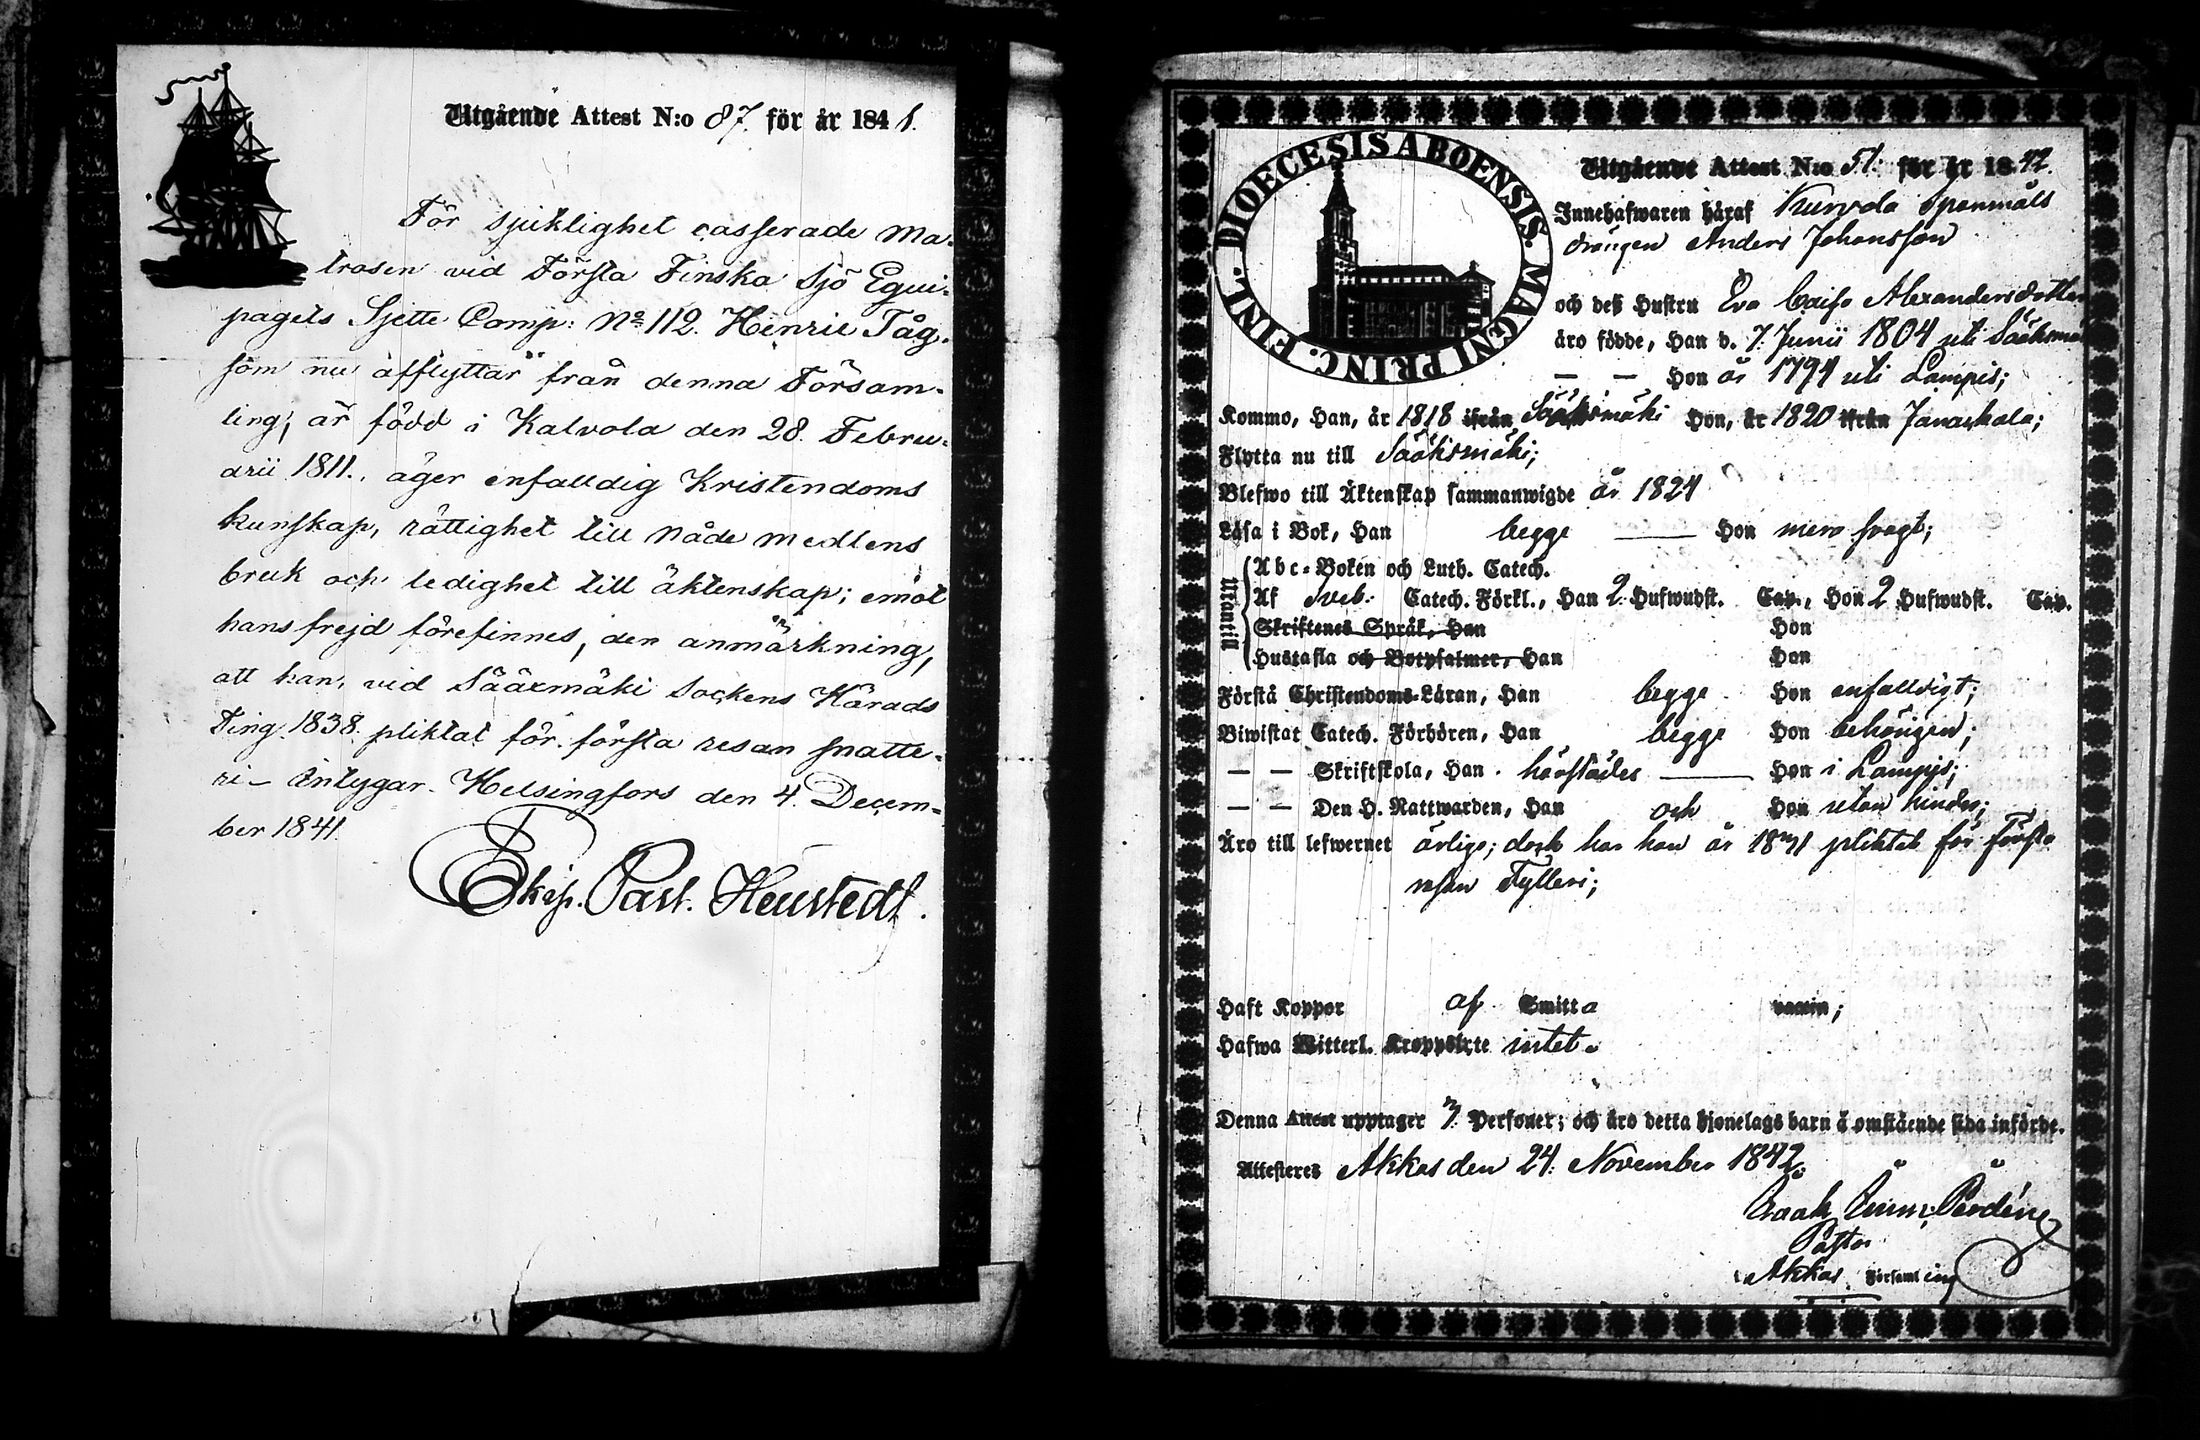 Utgående Attest N:o 87. för år 1841.
För sjuklighet casserade Ma-
trosen vid Första Finska Sjö Equi-
pagets Sjette Comp: No 112. Henric Tåg.
som nu afflyttar från denna Försam-
ling, är född i Kalvola den 28. Febru-
arii 1811., äger enfaldig Kristendoms
kunskap, rättighet till Nåde medlens
bruk och ledighet till äktenskap; emot
hans frejd förefinnes, den anmärkning,
att han, vid Sääxmäki Sockens Härads
Ting 1838. pliktat för första resan snatte-
ri- Intygar. Helsingfors den 4. Decem-
ber 1841.
Ekip. Past. Heustedt.
DIOECESIS ABOENSIS. MAGNI PRINC. FINL.
Utgående Attest N:o 51. för år 1842.
Innehafwaren häraf Kurvda Spanmåls
drängen Anders Johansson
och deß Hustru Eva Caisa Alexandersdotter
äro födde, Han d. 7. Junii 1804 uti Sääksmä
— — Hon år 1794 uti Lampis;
Kommo, Han, år 1818 ifrån Sääksmäki Hon, år 1820 ifrån Janakkala;
Flytta nu till Sääksmäki;
Blefwo till Äktenskap sammanwigde år 1824
Läsa i Bok, Han begge — Hon men svagt;
Utantill
Abc-Boken och Luth. Catech.
Af Sveb. Catech. Förkl., Han 2 Hufwudst. Cap., Hon 2 Hufwudst. Cap.
Skriftenes Språk, Han Hon
Hustafla och Botpsalmer, Han Hon
Förstå Christendoms-Läran, Han begge Hon enfalldigt;
Biwistat Catech. Förhören, Han begge Hon behörigen;
— — Skriftskola, Han härstädes — Hon i Lampis;
— — Den H. Nattwarden, Han och Hon utan hinder;
Äro till lefwernet ärlige; dock har han år 1841 pliktat för första
resan Fylleri;
Haft Koppor af Smitta vaccin;
Hafwa Witterl. Kroppslyte intet.
Denna Attest upptager 7. Personer; och äro detta hjonelags barn å omstående sida införde.
Attesteras Akkas den 24. November 1842.
Pastor
Akkas Församling